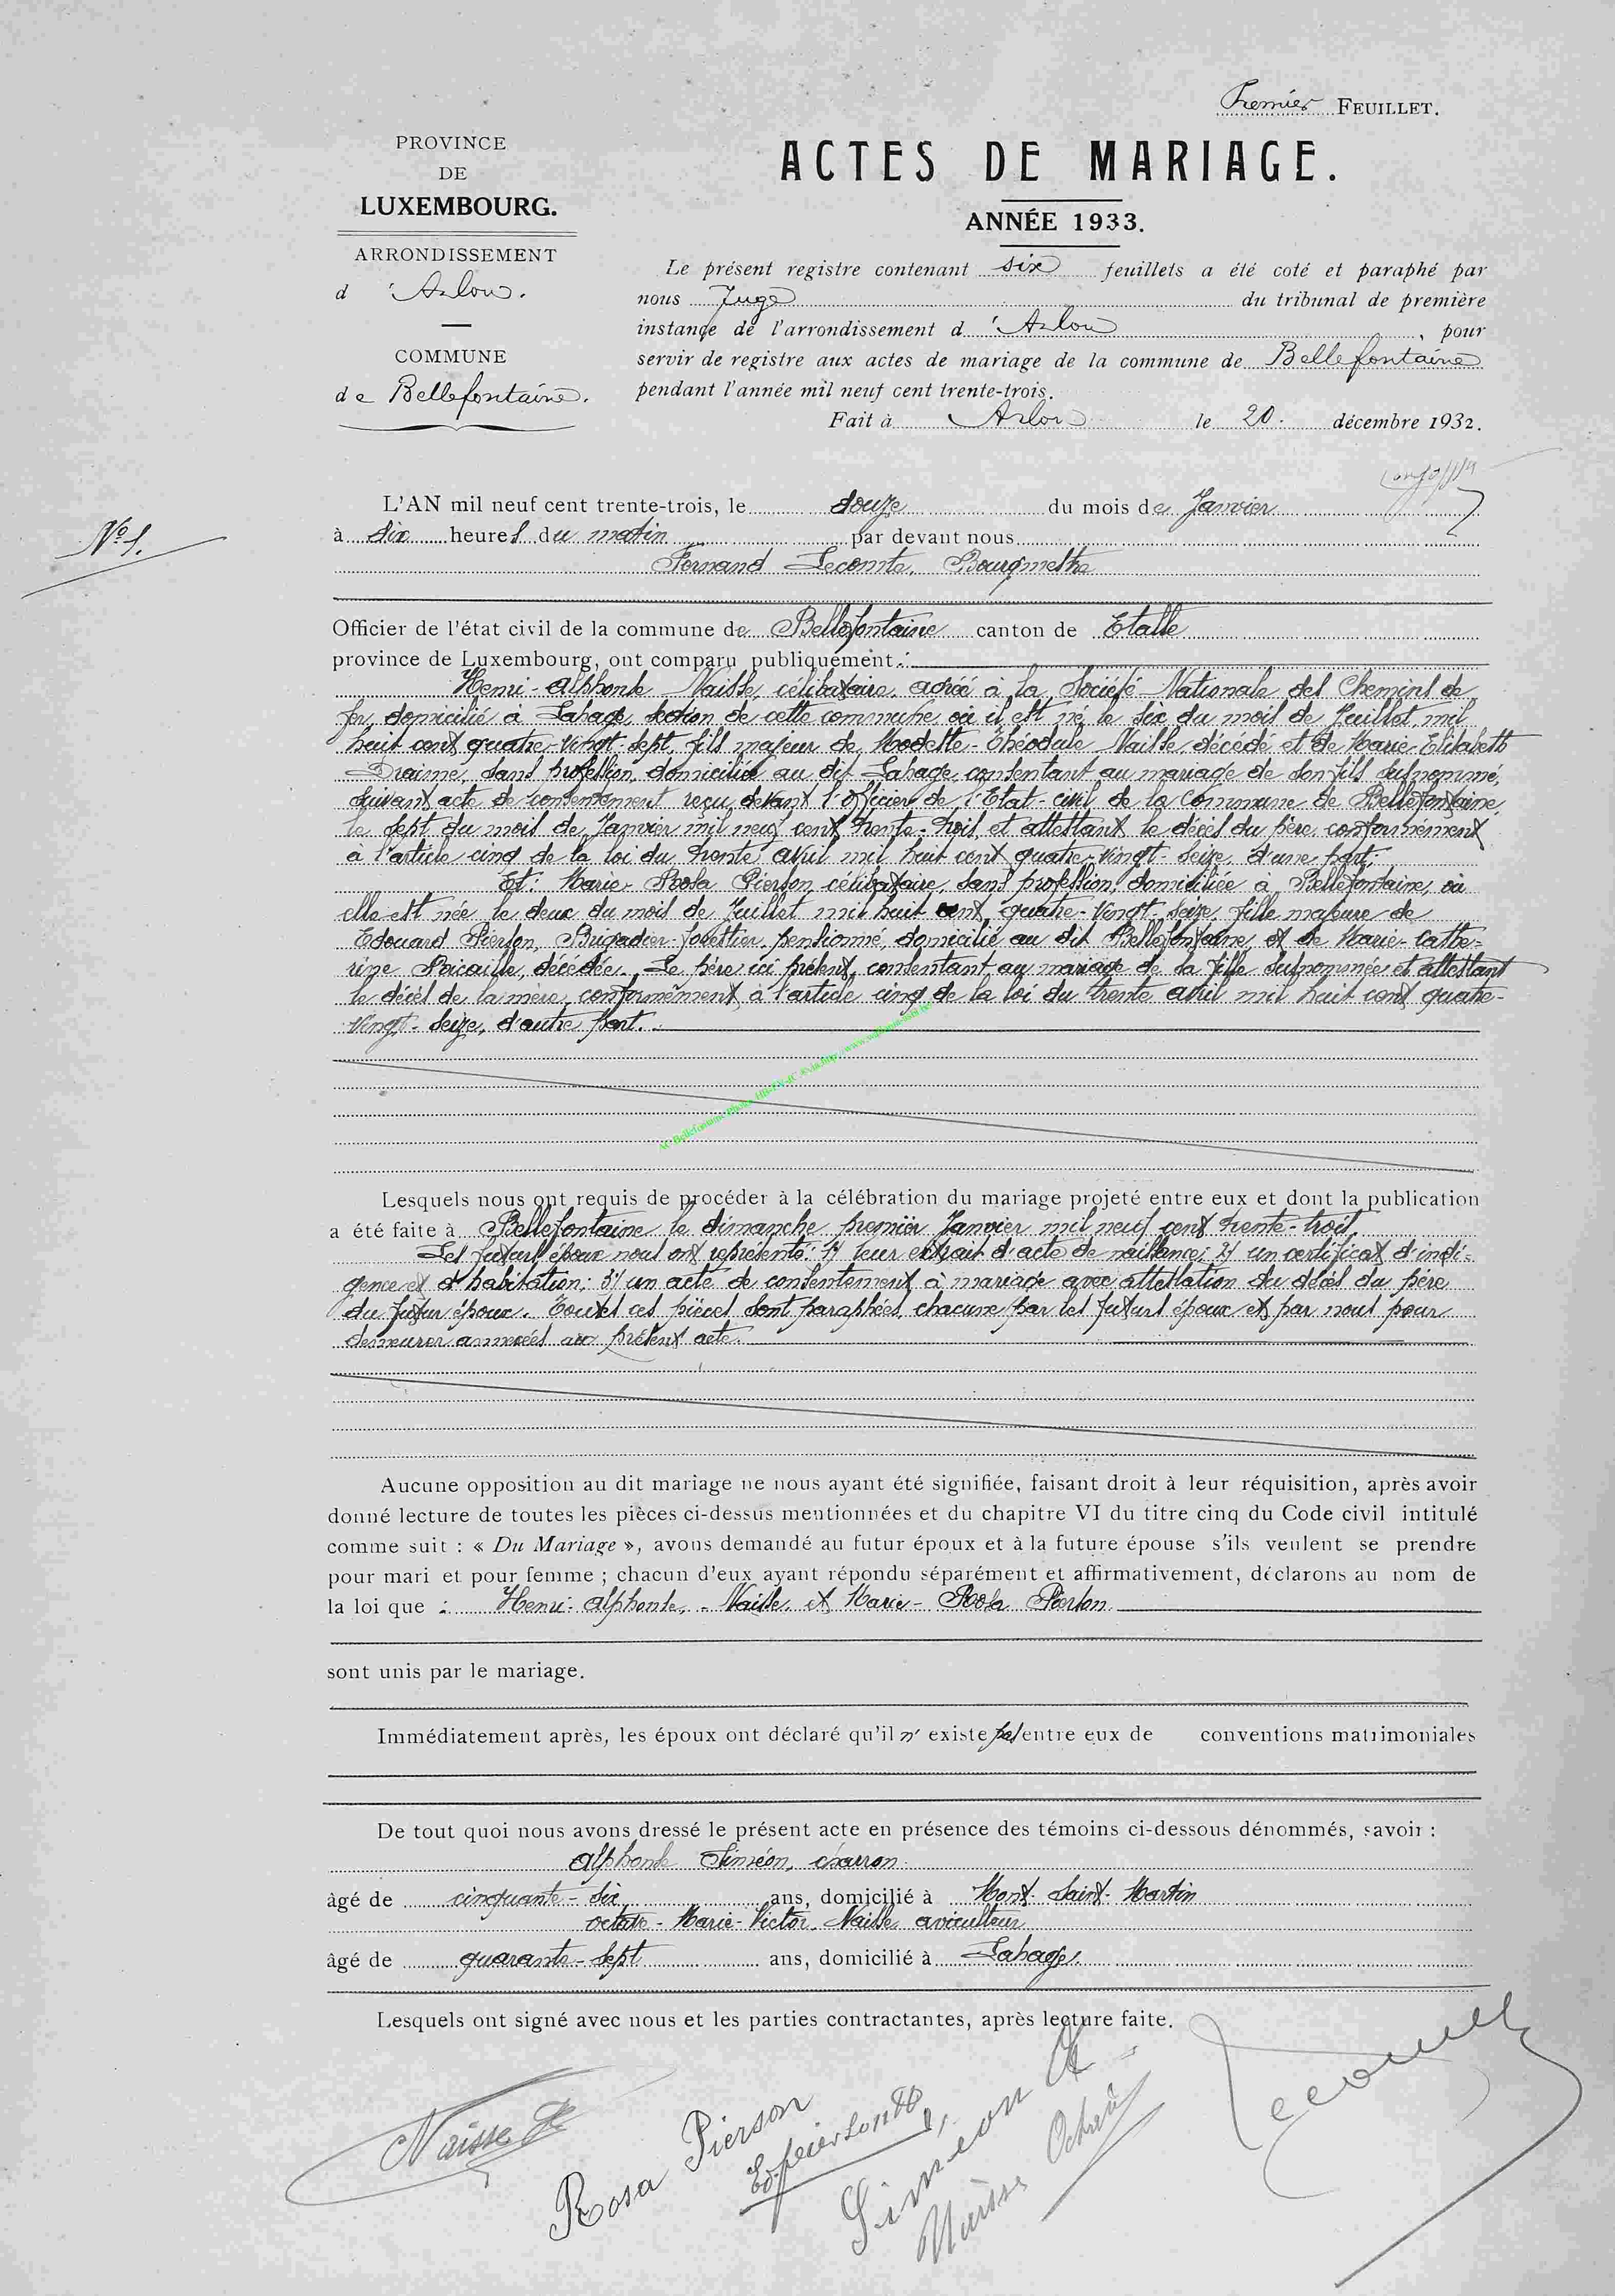 Premier FEUILLET.
PROVINCE
DE
LUXEMBOURG.
ARRONDISSEMENT
d'Arlon.
COMMUNE
de Bellefontaine.
ACTES DE MARIAGE.
ANNÉE 1933.
Le présent registre contenant six feuillets a été coté et paraphé par
nous Juge du tribunal de première
instance de l'arrondissement d'Arlon, pour
servir de registre aux actes de mariage de la commune de Bellefontaine
pendant l'année mil neuf cent trente-trois.
Fait à Arlon le 20 décembre 1932.
N° 1.
L'AN mil neuf cent trente-trois, le douze du mois de Janvier
à dix heures du matin par devant nous
Fernand Lecomte, Bourgmestre
Officier de l'état civil de la commune de Bellefontaine canton de Etalle
province de Luxembourg, ont comparu publiquement :
Henri-Alphonse Naisse, célibataire, agréé à la Société Nationale des Chemins de
fer, domicilié à Lahage, section de cette commune où il est né le six du mois de Juillet mil
huit cent quatre-vingt-sept, fils majeur de Modeste-Théodule Naisse, décédé et de Marie-Elisabeth
Draime, sans profession, domiciliée au dit Lahage, consentant au mariage de son fils susnommé,
suivant acte de consentement reçu devant l'officier de l'Etat-civil de la Commune de Bellefontaine,
le sept du mois de Janvier mil neuf cent trente-trois et attestant le décès du père, conformément
à l'article cinq de la loi du trente avril mil huit cent quatre-vingt-seize, d'une part.
Et : Marie-Rosa Pierson, célibataire, sans profession, domiciliée à Bellefontaine, où
elle est née le deux du mois de Juillet mil huit cent quatre-vingt-seize, fille majeure de
Edouard Pierson, Brigadier-forestier pensionné, domicilié au dit Bellefontaine, et de Marie-Cathe=
rine Sacaille, décédée. Le père ici présent, consentant au mariage de sa fille susnommée et attestant
le décès de la mère, conformément à l'article cinq de la loi du trente avril mil huit cent quatre-
vingt-seize, d'autre part.
Lesquels nous ont requis de procéder à la célébration du mariage projeté entre eux et dont la publication
a été faite à Bellefontaine le dimanche premier Janvier mil neuf cent trente-trois.
Les futurs époux nous ont représenté : 1) leur extrait d'acte de naissance ; 2) un certificat d'indi=
gence et d'habitation ; 3) un acte de consentement à mariage avec attestation du décès du père
du futur époux. Toutes ces pièces sont paraphées, chacune par les futurs époux et par nous pour
demeurer annexées au présent acte.
Aucune opposition au dit mariage ne nous ayant été signifiée, faisant droit à leur réquisition, après avoir
donné lecture de toutes les pièces ci-dessus mentionnées et du chapitre VI du titre cinq du Code civil intitulé
comme suit : « Du Mariage », avons demandé au futur époux et à la future épouse s'ils veulent se prendre
pour mari et pour femme ; chacun d'eux ayant répondu séparément et affirmativement, déclarons au nom de
la loi que : Henri-Alphonse Naisse et Marie-Rosa Pierson
sont unis par le mariage.
Immédiatement après, les époux ont déclaré qu'il n'existe pas entre eux de conventions matrimoniales
De tout quoi nous avons dressé le présent acte en présence des témoins ci-dessous dénommés, savoir :
Alphonse Siméon, charron
âgé de cinquante-six ans, domicilié à Mont-Saint-Martin
Octave-Marie-Victor Naisse, aviculteur
âgé de quarante-sept ans, domicilié à Lahage.
Lesquels ont signé avec nous et les parties contractantes, après lecture faite.
Naisse
Rosa Pierson
Simeon A
Naisse Octave
Lecomte